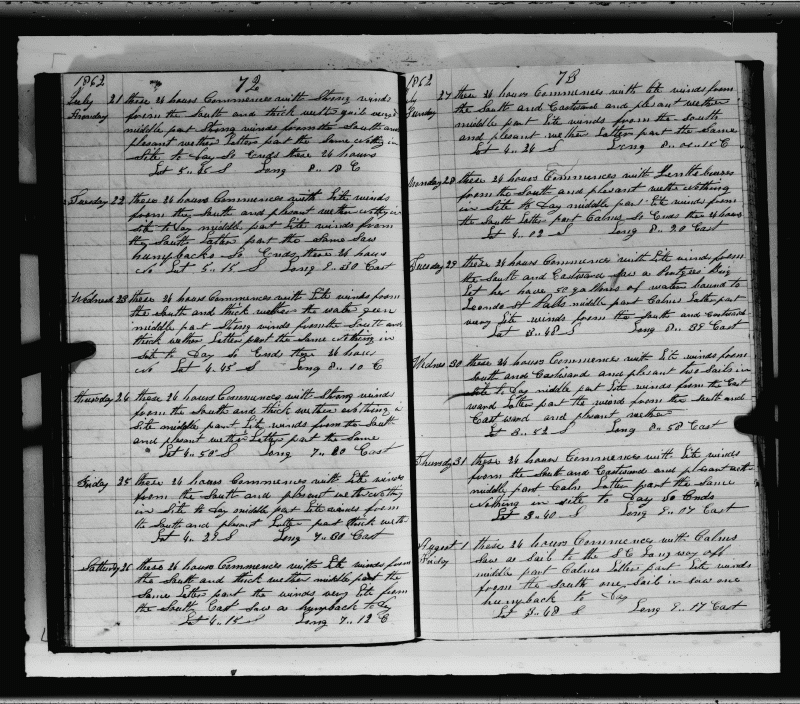 1862 72
July 21 these 24 hours Commences with Strong winds
Monday from the South and thick wether quile
middle part Strong winds from the South and
plesent wether Latter part the Same nothing in
Site to Day So Ends these 24 hours
Lat 5..45 S Long 8..18 E
Tuesday 22 these 24 hours Commences with Lite winds
from the South and plesent wether nothing in
site to Day middle part Lite winds from
the South Latter part the Same Saw
humpbacks So Ends these 24 hours
No Lat 5..15 S Long 8..30 East
Wednesd 23 these 24 hours Commences with Lite winds from
the South and thick wether the water green
middle part Strong winds from the South and
thick wether Latter part the Same Nothing in
Site to Day So Ends these 24 hours
No Lat 4..45 S Long 8..10 E
Thursday 24 these 24 hours Commences with Strong winds
from the South and thick wether nothing in
Site middle part Lite winds from the South
and plesent wether Latter part the Same
Lat 4..50 S Long 7..20 East
Friday 25 these 24 hours Commences with Lite winds
from the South and plesent wether nothing
in Site to Day middle part Lite winds from
the South and plesent Latter part thick weth
Lat 4..27 S Long 7..30 East
Satterday 26 these 24 hours Commences with Lite winds from
the South and thick wether middle part the
Same Latter part the winds very Lite from
the South East Saw a humpback to Day
Lat 4..15 S Long 7..12 E
1862 73
July 27 these 24 hours Commences with Lite winds from
Sunday the South and Eastward and plesant wether
middle part Lite winds from the South
and plesent wether Latter part the Same
Lat 4..24 S Long 8..00..15 E
Munday 28 these 24 hours Commences with Gentle breezes
from the South and plesent wether nothing
in Site to Day middle part Lite winds from
the South Latter part Calms So Ends these 24 hours
Lat 4..02 S Long 8..20 East
Tuesday 29 these 24 hours Commences with Lite winds from
the South and Eastward Saw a Brig
Let her have 50 gallons of water bound to
middle part Calms Latter part
very Lite winds from the South and Eastward
Lat 3..48 S Long 8..35 East
Wednes 30 these 24 hours Commence with Lite winds from
South and Eastward and plesent two Sails in
Site to Day middle part Lite winds from the East
ward Latter part the wind from the South and
East ward and plesent wether
Lat 3..52 S Long 8..58 East
Thursday 31 these 24 hours Commences with Lite winds
from the South and Eastward and plesent weth
middle part Calm Latter part the Same
Nothing in Site to Day So Ends
Lat 3..40 S Long 9..07 East
August 1 these 24 hours Commences with Calms
Friday Saw a Sail to the S E Long way off
middle part Calms Latter part Lite winds
from the South one Sail in saw one
humpback to Day
Lat 3..48 S Long 9..17 East